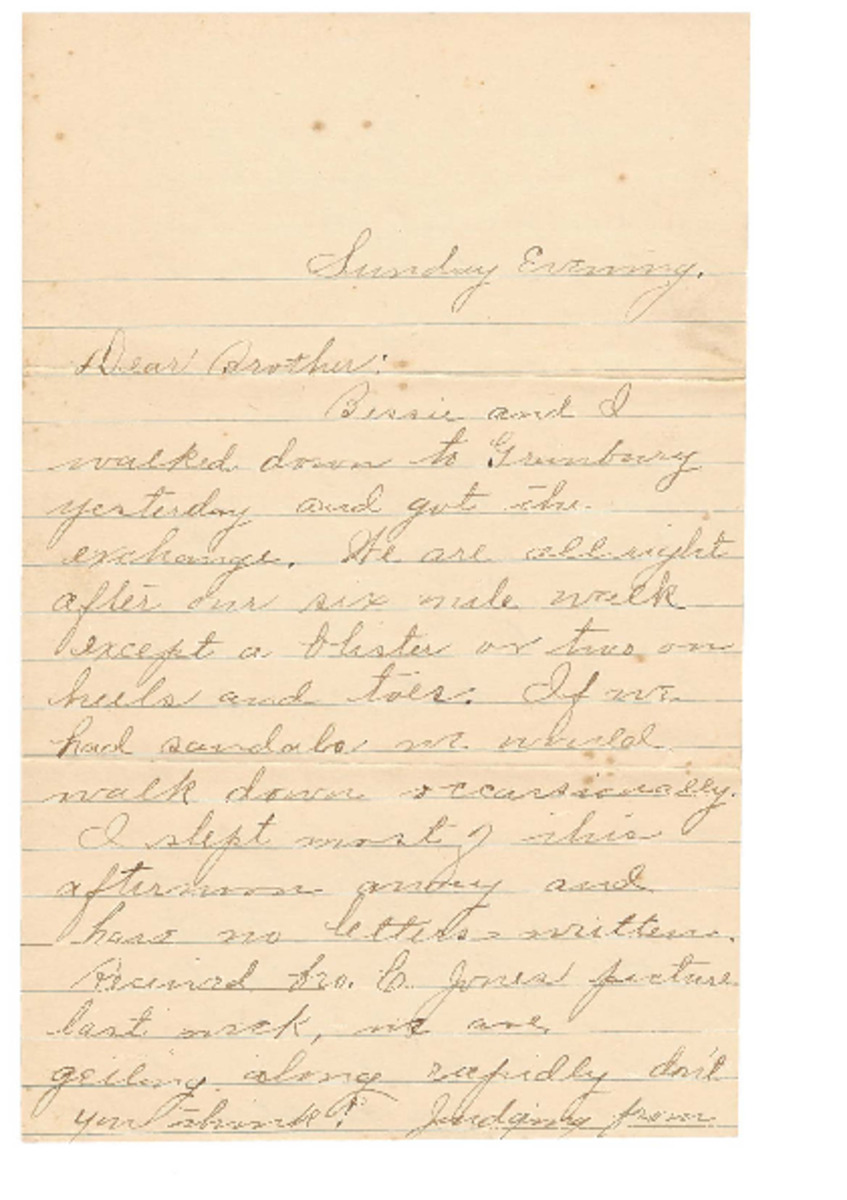 Sunday Evening.
Dear Brother:
Bessie and I
walked down to Granbury
yesterday and got the
exchange. We are all right
after our six mile walk
except a blister or two on
heels and toes. If we
had sandals we would
walk down occassionally.
I slept most of this
afternoon away and
have no letters written.
Received Bro. C. Jones' picture
last week, we are
getting along rapidly don't
you think? Judging from